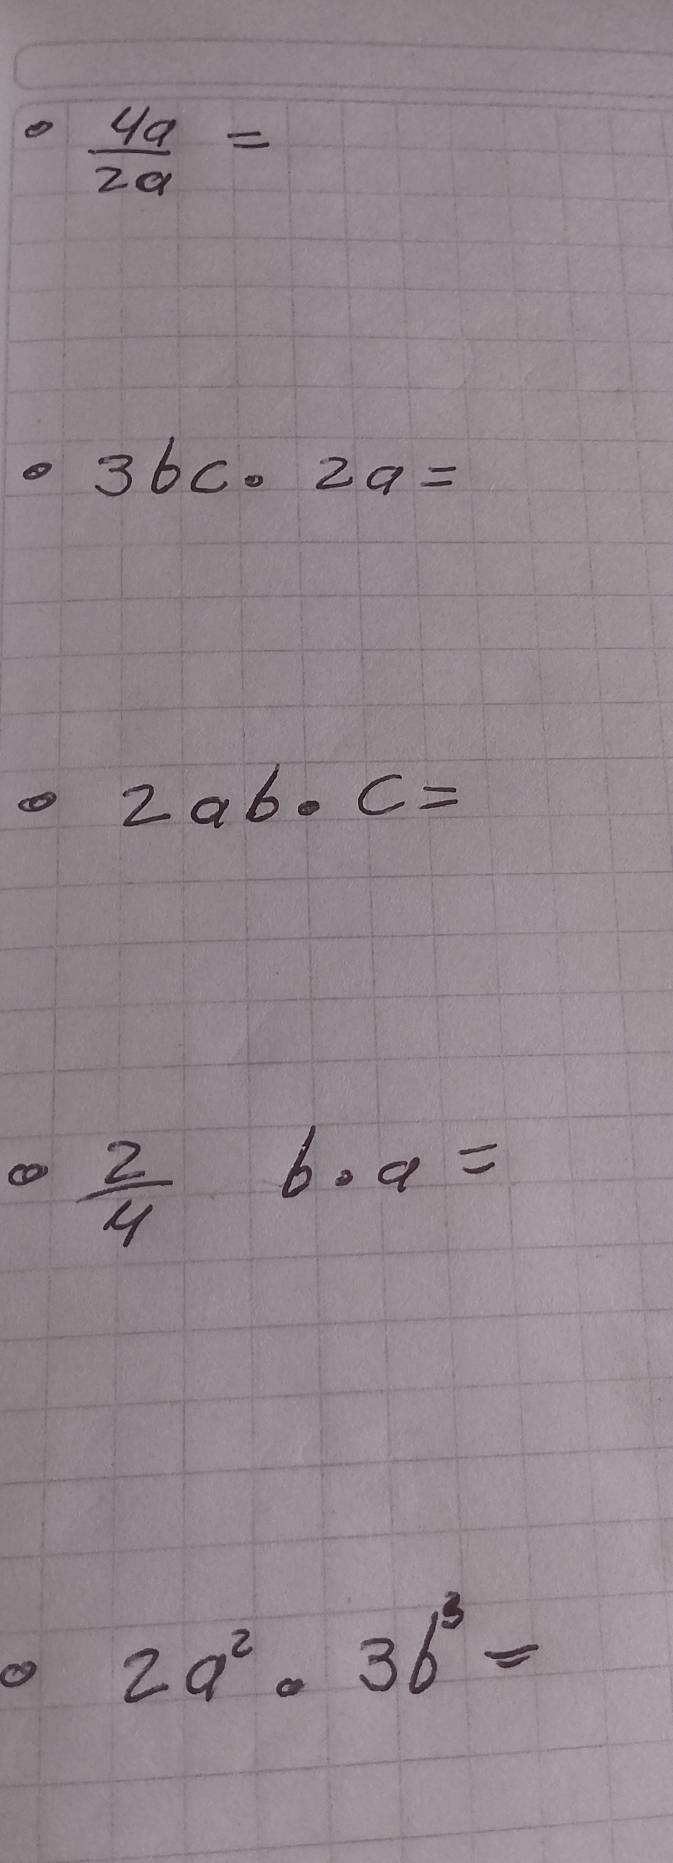 • 4a/2a =
• 3bc • 2a =
• 2ab • c =
• 2/4 b • a =
• 2a² • 3b³ =